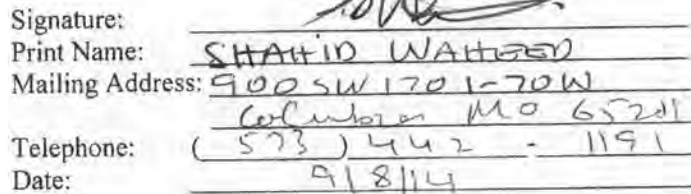 Signature:
Print Name: SHAHID WAHEED
Mailing Address: 900 SW I70 I-70W
Columbia MO 65201
Telephone: (573) 442 - 1191
Date: 9/8/14